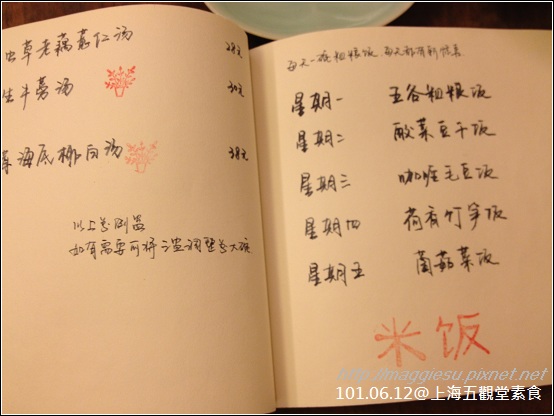 虫草老藕薏仁汤 28元
生牛蒡汤 30元
海底椰白汤 38元
以上为例盅
如有需要可将三盅调整为大碗
每天一碗粗粮饭 每天都有新惊喜
星期一 五谷粗粮饭
星期二 酸菜豆干饭
星期三 咖喱毛豆饭
星期四 荷香竹笋饭
星期五 菌菇菜饭
米饭
http://maggiesu.pixnet.net/
101.06.12@上海五觀堂素食